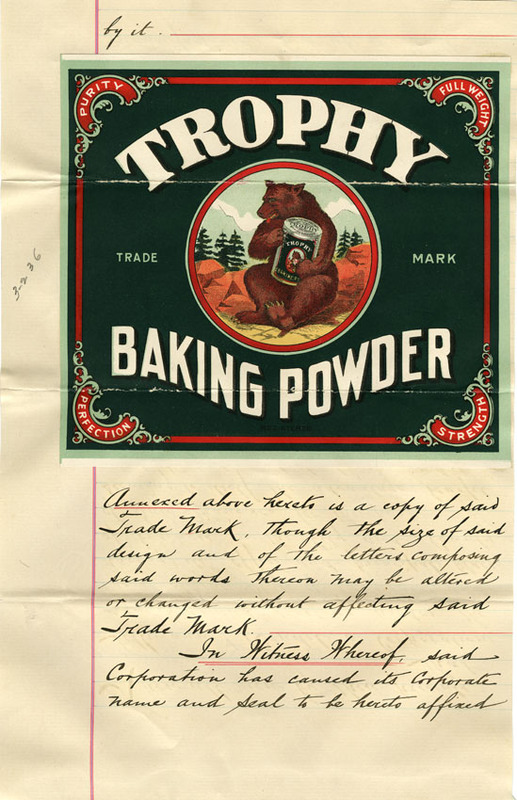 by it.
PURITY
FULL WEIGHT
TROPHY
TROPHY
TRADE MARK
3-2 36
BAKING POWDER
PERFECTION
STRENGTH
Annexed above hereto is a copy of said
Trade Mark, though the size of said
design and of the letters composing
said words thereon may be altered
or changed without affecting said
Trade Mark.
In Witness Whereof, said
Corporation has caused its Corporate
name and seal to be hereto affixed